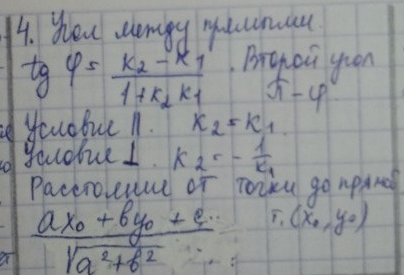 4. Угол между прямыми.
tg φ = (k₂ - k₁) / (1 + k₂ k₁) . Второй угол π - φ
Условие ||. k₂ = k₁.
Условие ⊥. k₂ = - 1/k₁
Расстояние от точки до прямой
(ax₀ + by₀ + c) / √(a² + b²) т. (x₀, y₀)